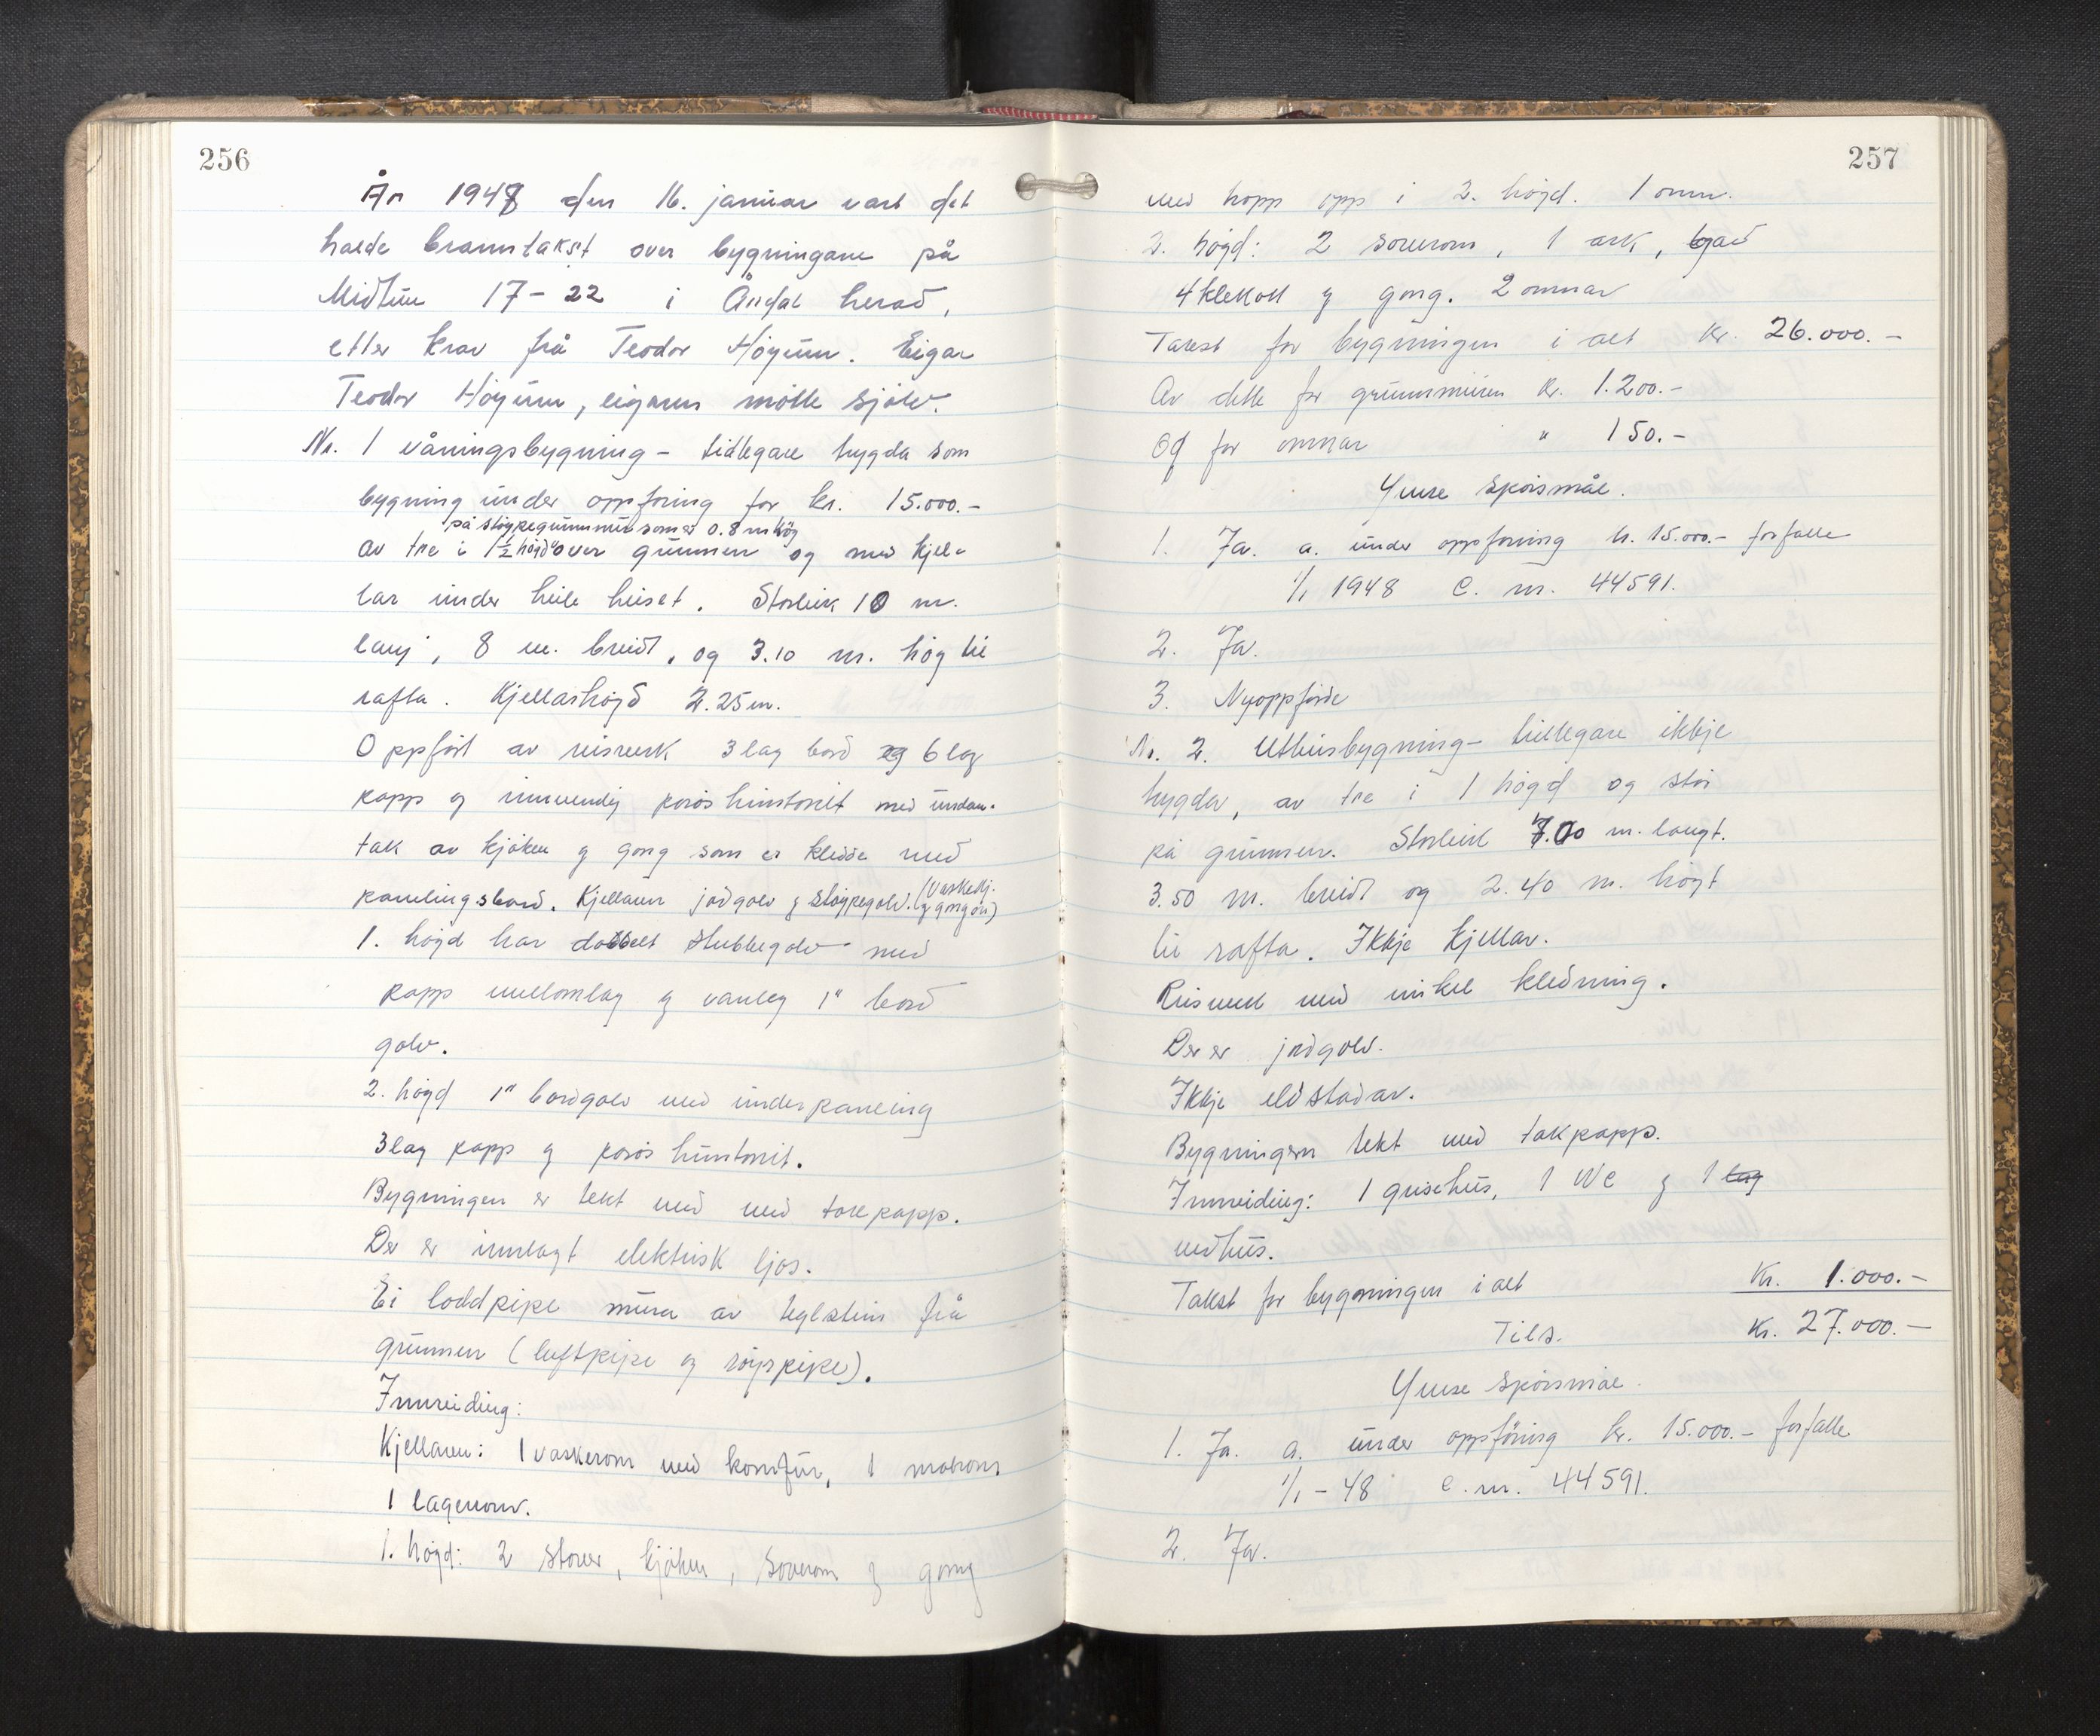 256
År 1948 den 16. januar vart det
halde branntakst over bygningane på
Midtun 17-22 i Årdal herad,
etter krav frå Teodor Høyum. Eigar
Teodor Høyum, eigaren møtte sjølv.
Nr. 1 våningsbygning - tidlegare trygda som
bygning under oppføring for kr. 15.000.-
på støypegrunnmur som er 0.8 m høg
av tre i 1½ høgd over grunnen og med kjel-
lar under heile huset. Storleik 10 m.
lang, 8 m. breid, og 3.10 m. høg til
rafta. Kjellarhøgd 2.25 m.
Oppført av reisverk 3 lag bord og 6 lag
papp og innvendig porøs huntonit med undan-
tak av kjøken og gong som er kledde med
panelingsbord. Kjellaren jordgolv og støypegolv. (Vaskekj.
og gongen)
1. høgd har dobbelt stubbegolv med
papp mellomlag og vanleg 1" bord
golv.
2. høgd 1" bordgolv med underpaneling
3 lag papp og porøs huntonit.
Bygningen er tekt med med takpapp.
Der er innlagt elektrisk ljos.
Ei loddpipe mura av teglstein frå
grunnen (luftpipe og røykpipe).
Innreiding:
Kjellaren: 1 vaskerom med komfur, 1 matrom
1 lagerrom.
1. høgd: 2 stover, kjøken, soverom og gong
257
med tropp opp i 2. høgd. 1 omn.
2. høgd: 2 soverom, 1 ark, bad
4 klekott og gong. 2 omnar
Takst for bygningen i alt kr. 26.000.-
Av dette for grunnmuren kr. 1.200.-
Og for omnar " 150.-
Ymse spørsmål.
1. Ja. a. under oppføring kr. 15.000.- forfalle
1/1 1948 C. nr. 44591.
2. Ja.
3. Nyoppførde
Nr. 2. Uthusbygning - tidlegare ikkje
trygda, av tre i 1 høgd og står
på grunnen. Storleik 7.00 m. langt.
3.50 m. breidt og 2.40 m. høgt
til rafta. Ikkje kjellar.
Reisverk med enkel kledning.
Der er jordgolv.
Ikkje eldstadar.
Bygningen tekt med takpapp.
Innreiding: 1 grisehus, 1 WC og 1 lag
vedhus.
Takst for bygningen i alt Kr. 1.000.-
Tils. Kr. 27.000.-
Ymse spørsmål.
1. Ja. a. under oppføring kr. 15.000.- forfalle
1/1 - 48 C. nr. 44591.
2. Ja.